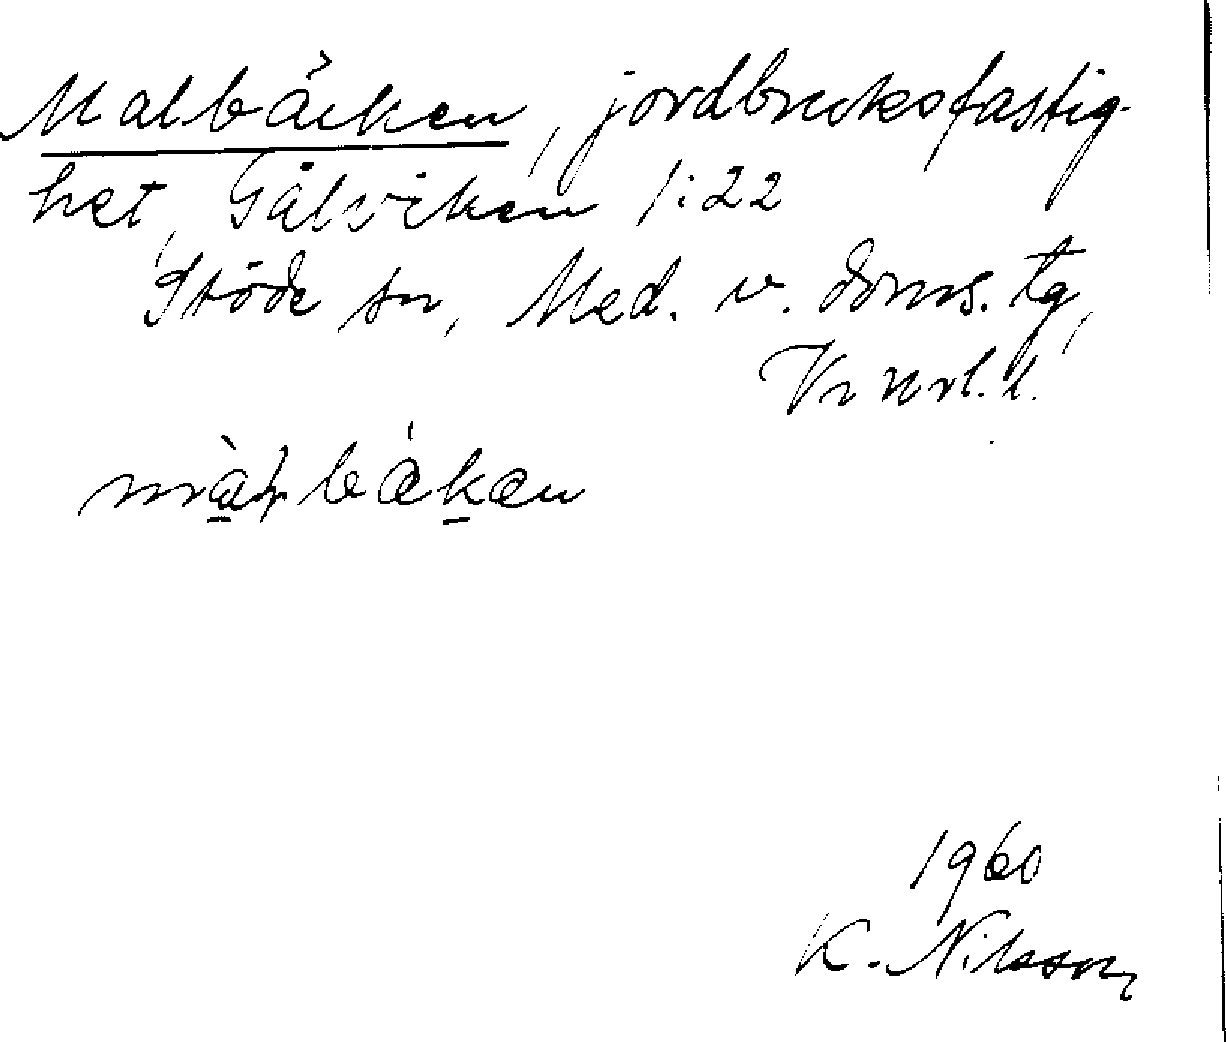 Malbäcken, jordbruksfastig-
het, Gålviken 1:22
Stöde sn, Med. v. doms. tg,
Vnorl. l.
1960
K. Nilsson